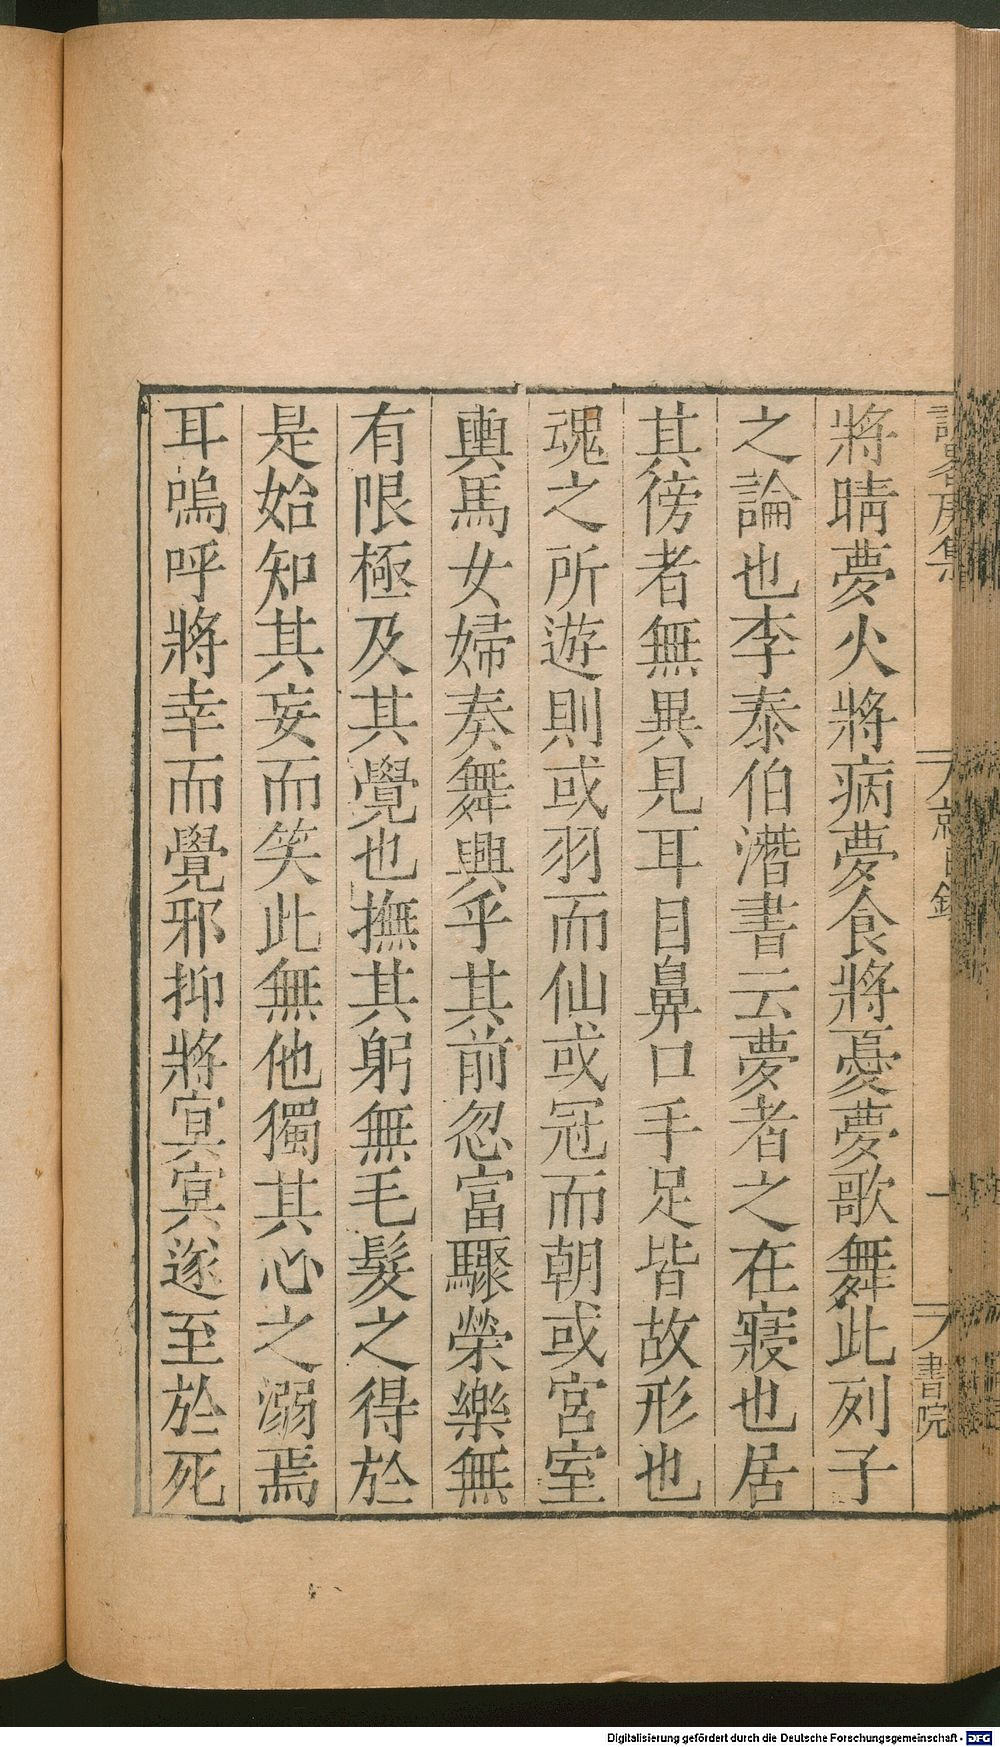 將晴夢火將病夢食將憂夢歌舞此列子
之論也李泰伯潛書云夢者之在寢也居
其傍者無異見耳目鼻口手足皆故形也
魂之所遊則或羽而仙或冠而朝或宮室
輿馬女婦奏舞興乎其前忽富驟榮樂無
有限極及其覺也撫其躬無毛髮之得於
是始知其妄而笑此無他獨其心之溺焉
耳嗚呼將幸而覺邪抑將冥冥遂至於死
書院
Digitalisierung gefördert durch die Deutsche Forschungsgemeinschaft - DFG